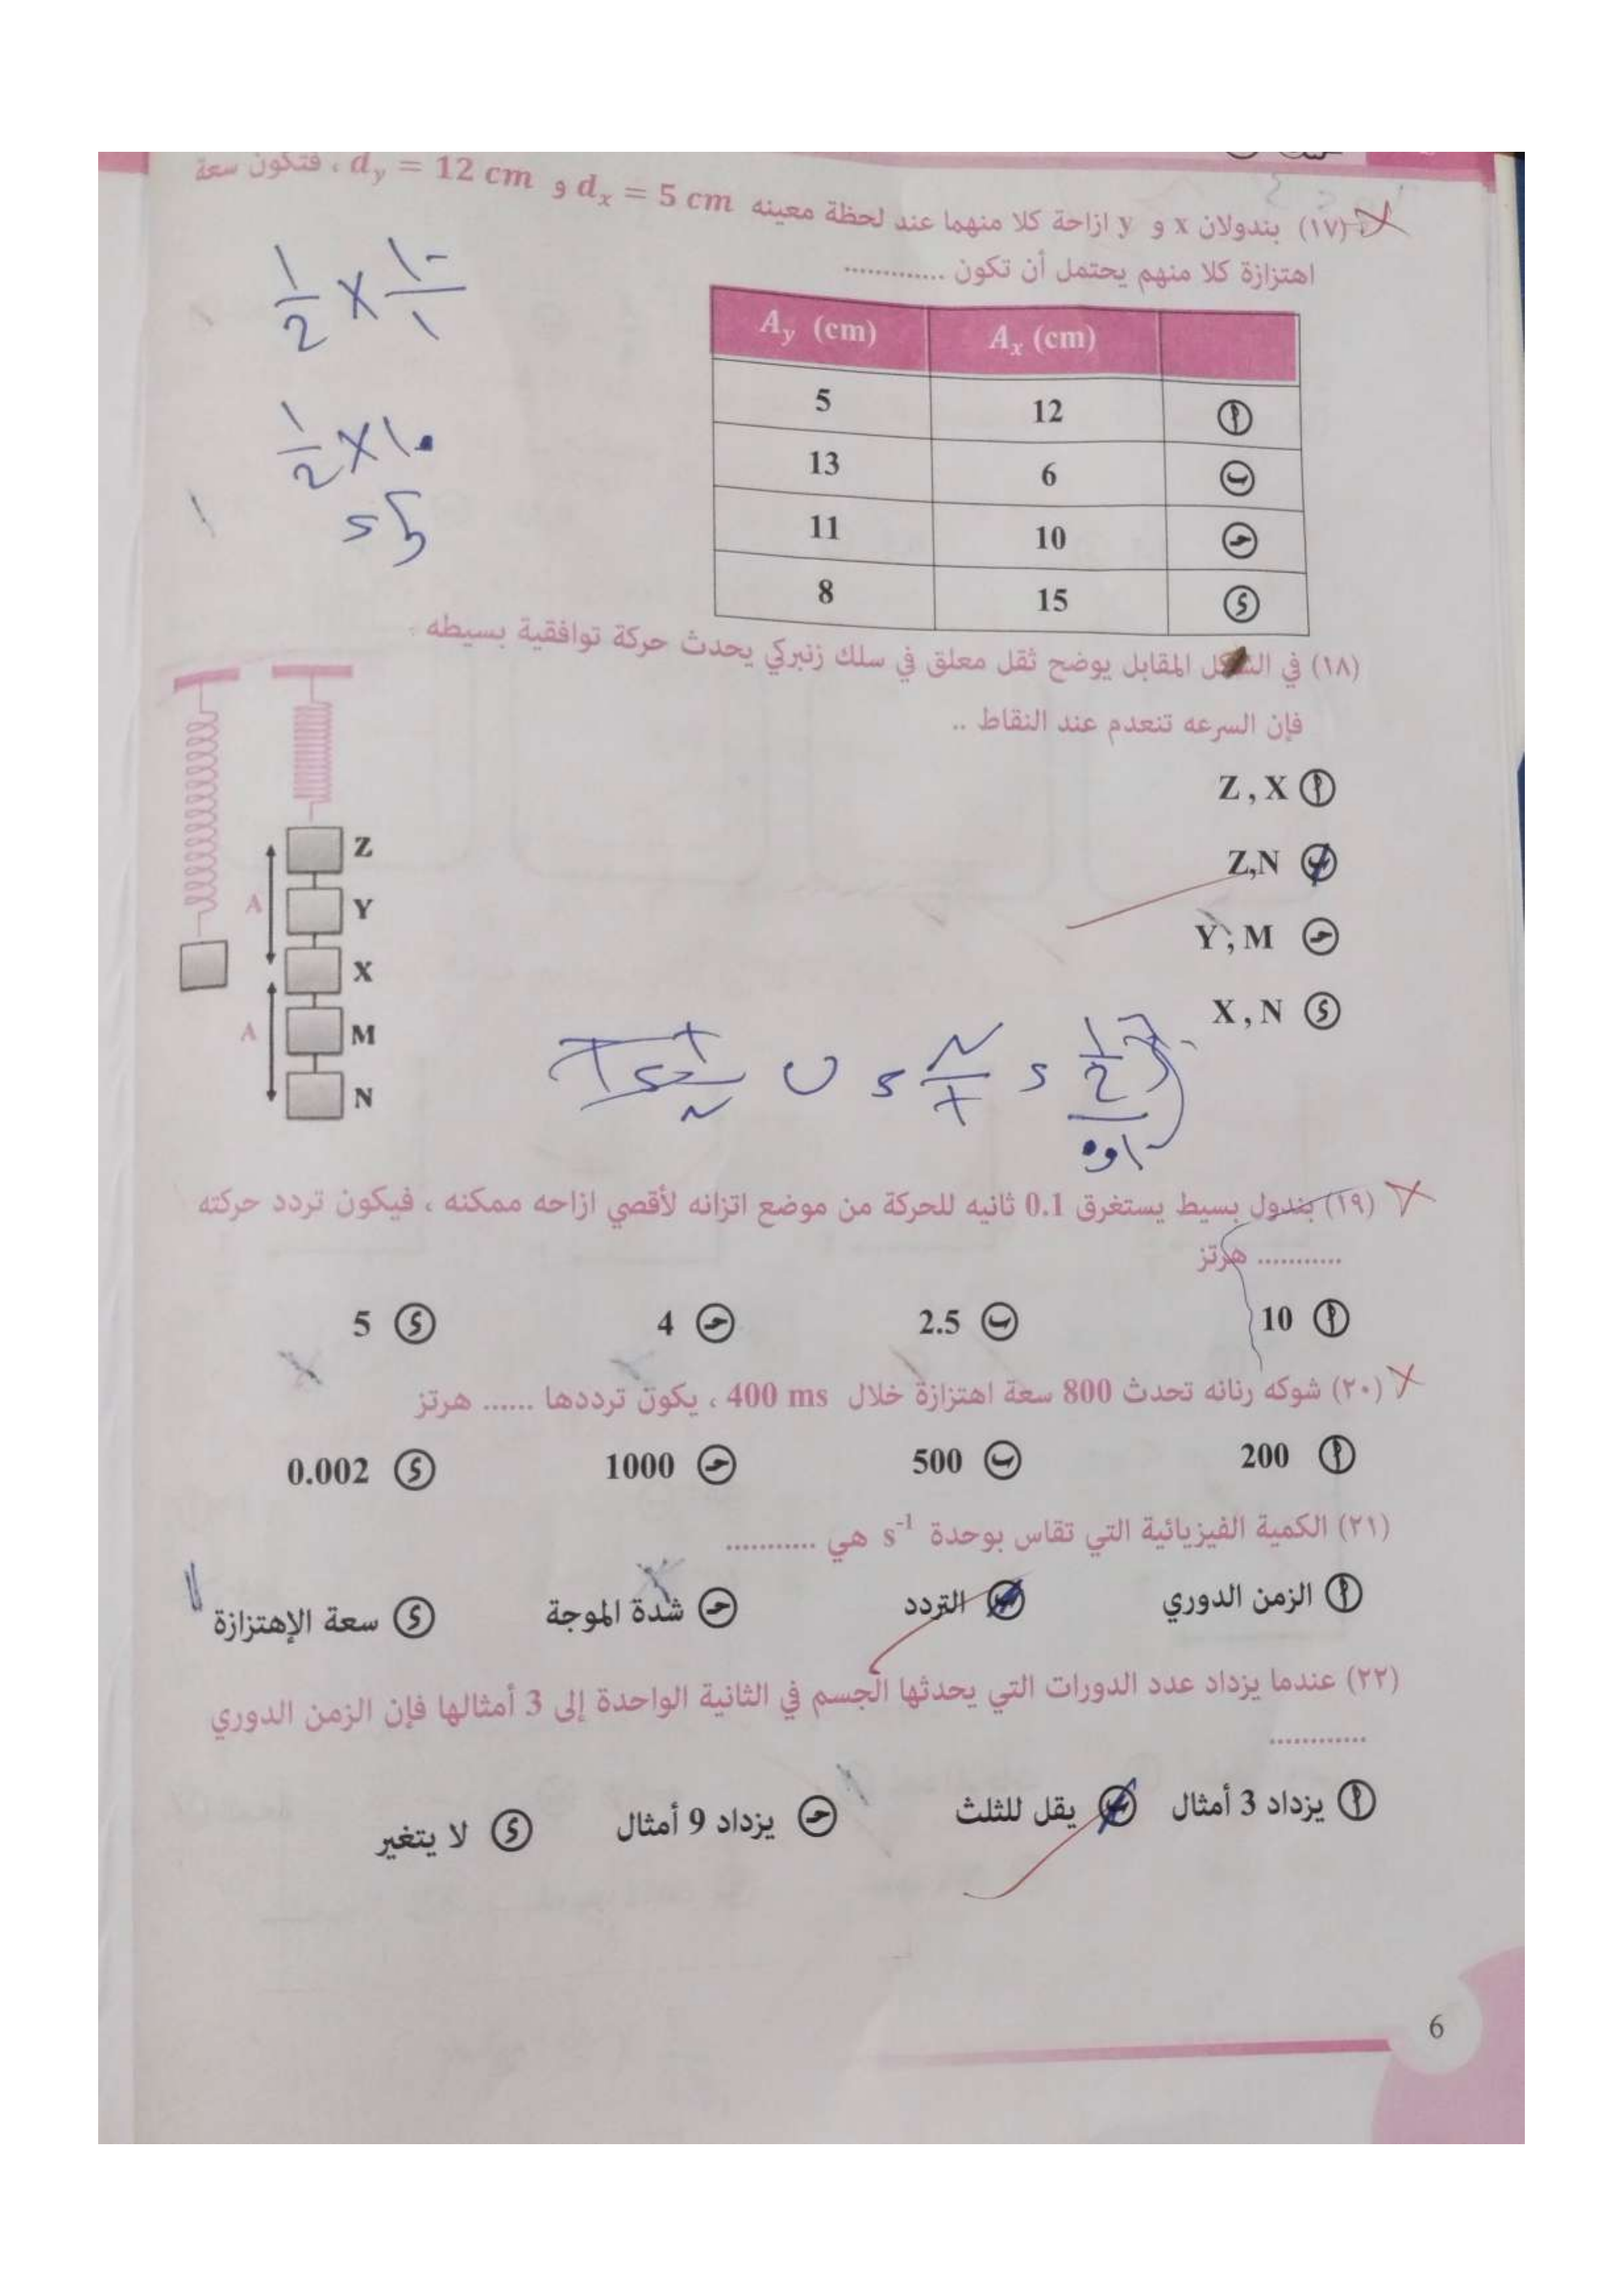 (١٧) بندولان x و y ازاحة كلا منهما عند لحظة معينه dₓ = 5 cm و d_y = 12 cm ، فتكون سعة
اهتزازة كلا منهم يحتمل أن تكون .............
Aₓ (cm) A_y (cm)
أ 12 5
ب 6 13
ج 10 11
د 15 8
1/2 × ١٠/١
1/2 × ١٠
(١٨) في الشكل المقابل يوضح ثقل معلق في سلك زنبركي يحدث حركة توافقية بسيطه .
فإن السرعه تنعدم عند النقاط ..
أ Z , X
ب Z,N
ج Y , M
د X , N
Z
A
Y
X
A
M
N
(١٩) بندول بسيط يستغرق 0.1 ثانيه للحركة من موضع اتزانه لأقصي ازاحه ممكنه ، فيكون تردد حركته
........... هرتز
أ 10 ب 2.5 ج 4 د 5
(٢٠) شوكه رنانه تحدث 800 سعة اهتزازة خلال 400 ms ، يكون ترددها ...... هرتز
أ 200 ب 500 ج 1000 د 0.002
(٢١) الكمية الفيزيائية التي تقاس بوحدة s⁻¹ هي ...........
أ الزمن الدوري ب التردد ج شدة الموجة د سعة الإهتزازة
(٢٢) عندما يزداد عدد الدورات التي يحدثها الجسم في الثانية الواحدة إلى 3 أمثالها فإن الزمن الدوري
............
أ يزداد 3 أمثال ب يقل للثلث ج يزداد 9 أمثال د لا يتغير
6